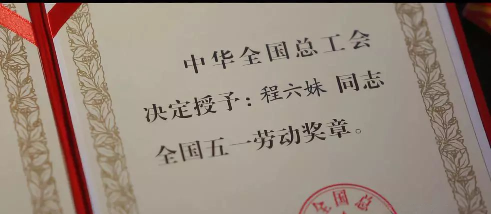 中华全国总工会
决定授予：程六妹 同志
全国五一劳动奖章。
全国总